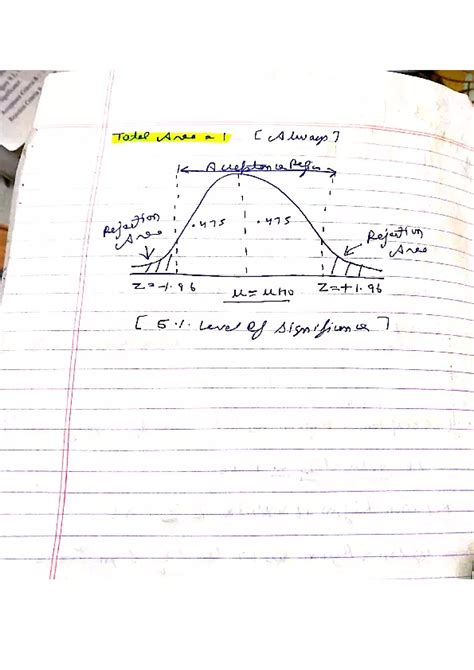 Total Area = 1 [Always]
Acceptance Region
Rejection Area
.475
.475
Rejection Area
Z=-1.96
μ = μH0
Z=+1.96
[5.1. Level of Significance]